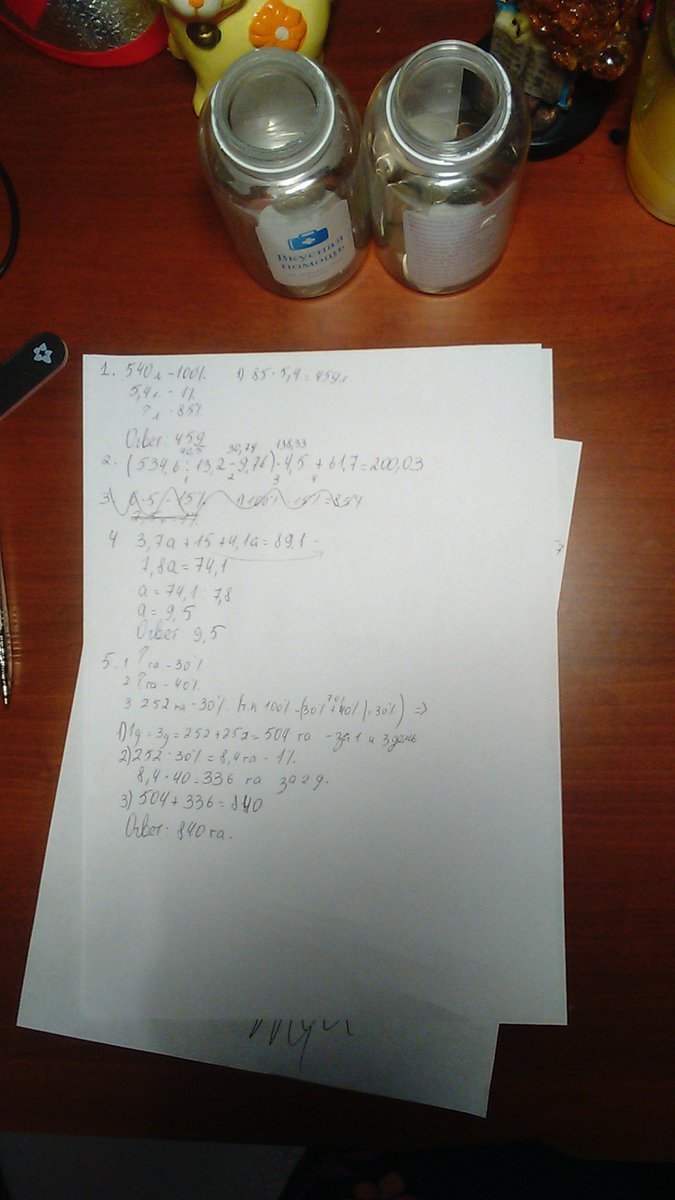 Вкусная
помощь
1. 540 л - 100% 1) 85 · 5,4 = 459 л
5,4 л - 1%
? л - 85%
Ответ: 459
40,5 30,74 138,33
2. (534,6 : 13,2 - 9,76) · 4,5 + 61,7 = 200,03
1 2 3 4
3
4 3,7a + 15 + 4,1a = 89,1
7,8a = 74,1
a = 74,1 : 7,8
a = 9,5
Ответ: 9,5
5. 1 ? га - 30%
2 ? га - 40%
3 252 га - 30% т.к 100% - (30% + 40%) = 30% =>
70%
1) 1д = 3д = 252 + 252 = 504 га - за 1 и 3 день
2) 252 : 30% = 8,4 га - 1%
8,4 · 40 = 336 га за 2 д.
3) 504 + 336 = 840
Ответ: 840 га.